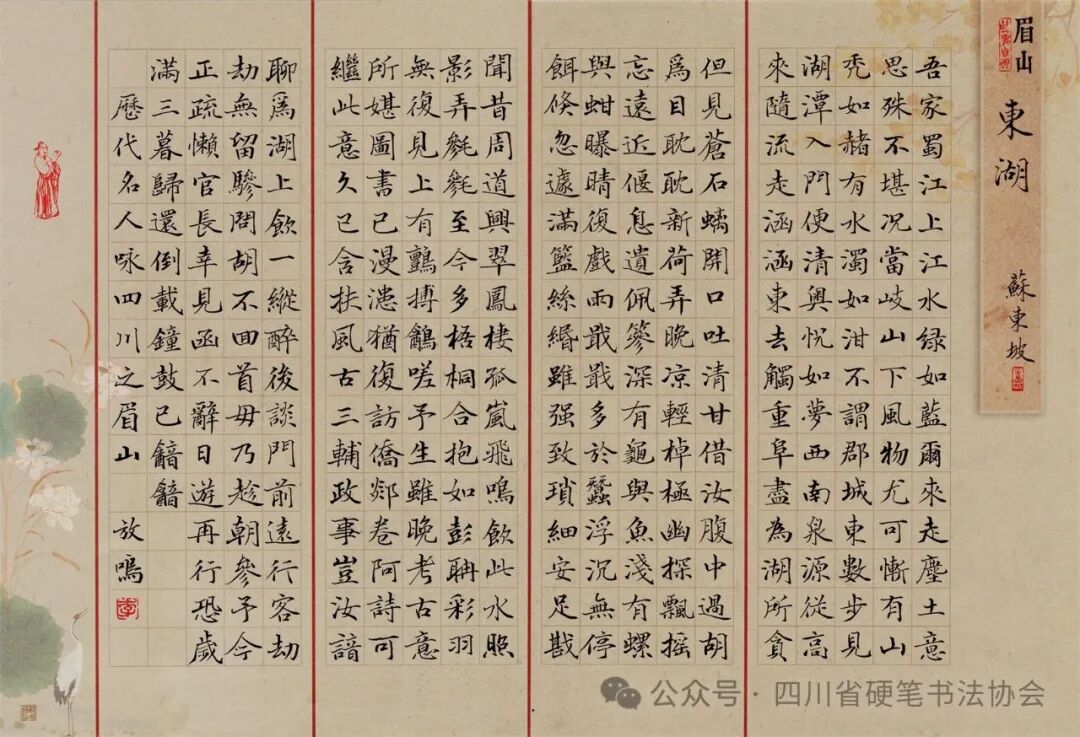 眉山 東湖 蘇東坡
吾家蜀江上江水绿如藍爾來走塵土意
思殊不堪况當岐山下風物尤可慚有山
秃如赭有水濁如泔不謂郡城東數步見
湖潭入門便清奥怳如夢西南泉源從高
來隨流走涵涵東去觸重阜盡為湖所貪
但見蒼石螭開口吐清甘借汝腹中過胡
爲目耽耽新荷弄晚凉輕棹極幽探飄摇
忘遠近偃息遺佩篸深有龜與魚淺有螺
與蚶曝晴復戲雨戢戢多於蠶浮沉無停
餌倏忽遽滿籃絲緡雖强致瑣細安足戡
聞昔周道興翠鳳棲孤嵐飛鳴飲此水照
影弄毿毿至今多梧桐合抱如彭聃彩羽
無復見上有鸇搏鵪嗟予生雖晚考古意
所媅圖書已漫漶猶復訪僑郯卷阿詩可
繼此意久已含扶風古三輔政事豈汝諳
聊爲湖上飲一縱醉後談門前遠行客劫
劫無留驂問胡不回首毋乃趁朝參予今
正疏懶官長幸見函不辭日遊再行恐歲
滿三暮歸還倒載鐘鼓已韽韽
歷代名人咏四川之眉山 放鳴
公众号·四川省硬笔书法协会